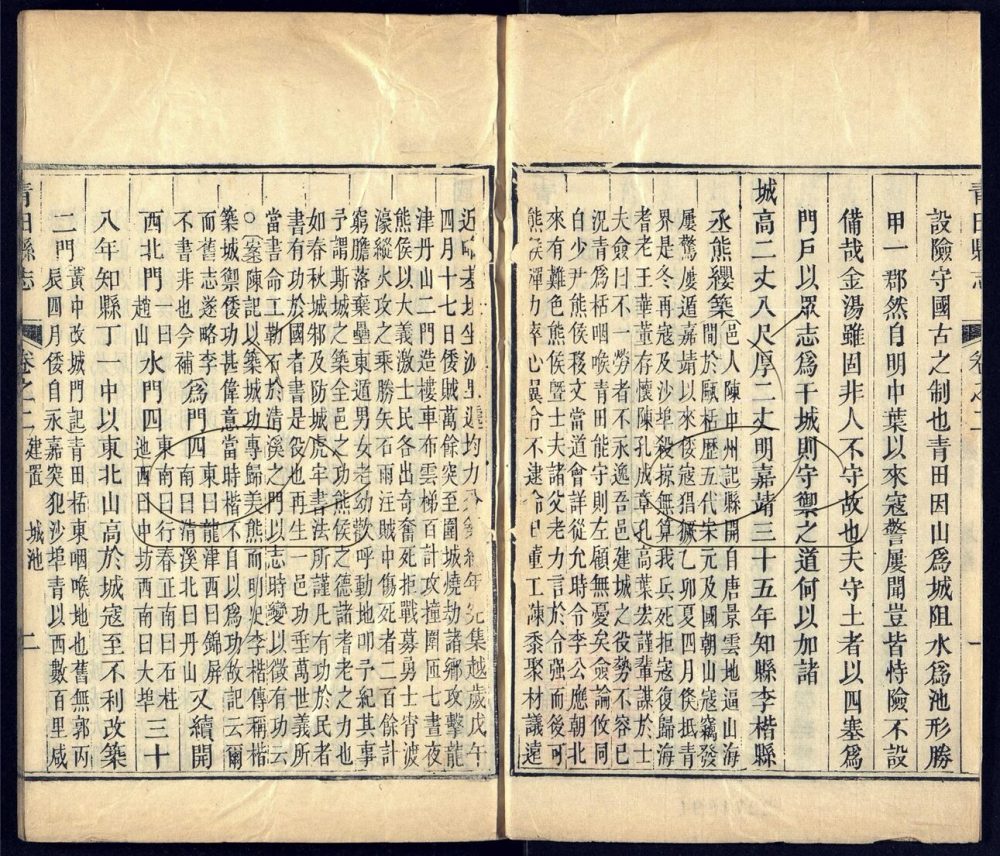 青田縣志 卷之二 一
設險守國古之制也青田因山爲城阻水爲池形勝
甲一郡然自明中葉以來寇警屢聞豈皆恃險不設
備哉金湯雖固非人不守故也夫守土者以四塞爲
門戶以眾志爲干城則守禦之道何以加諸
城高二丈八尺厚二丈明嘉靖三十五年知縣李楷縣
丞熊纓築 邑人陳中州記縣開自唐景雲地逼山海
間於甌栝歷五代宋元及國朝山寇竊發
屢驚屢遁嘉靖以來倭寇猖獗乙卯夏四月倭抵青
界是冬再寇及沙埠殺掠無算我兵死拒寇復歸海
耆老王華董存懷陳孔成章孔高葉宏謹輩謀於士
夫僉曰不一勞者不永逸吾邑建城之役勢不容已
況青爲栝咽喉青田能守則左顧無憂矣僉論攸同
白少尹熊侯移文當道會詳從允時令李公應朝北
來有難色熊侯曁士夫諸父老力言於令令强而後可
熊侯殫力率心翼令不逮命日重工凍黍聚材議遠
近 均力 集越歲戊午
四月十七日倭賊萬餘突至圍城燒劫諸鄉攻擊龍
津丹山二門造樓車布雲梯百計攻撞圍匝七晝夜
熊侯以大義激士民各出奇奮死拒戰募勇士宵渡
濠縱火攻之乘勝矢石雨注賊中傷死者二百餘計
窮膽落棄壘東遁男女老幼歡呼動地叩予紀其事
予謂斯城之築全邑之功熊侯之德諸耆老之力也
如春秋城邾及防城虎牢書法所謹凡有功於民者
書書有功於國者書是役也再生一邑功垂萬世義所
當書命工勒石于清溪之門以志時變以徵有功云
○案陳記以築城功專歸美熊而明史李楷傳稱楷
築城禦倭功甚偉意當時楷不自以爲功故記云爾
而舊志遂略李
不書非也今補 爲門四 東曰龍津西曰錦屏
南曰清溪北曰丹山 又續開
西北門一曰趙山 水門四 東南曰行春正南曰石柱
池西曰中坊西南曰大埠 三十
八年知縣丁一中以東北山高於城寇至不利改築
二門 黃中改城門記青田栝東咽喉地也舊無郭丙
辰四月倭自永嘉突犯沙埠青以西數百里咸
青田縣志 卷之二 建置 城池 二